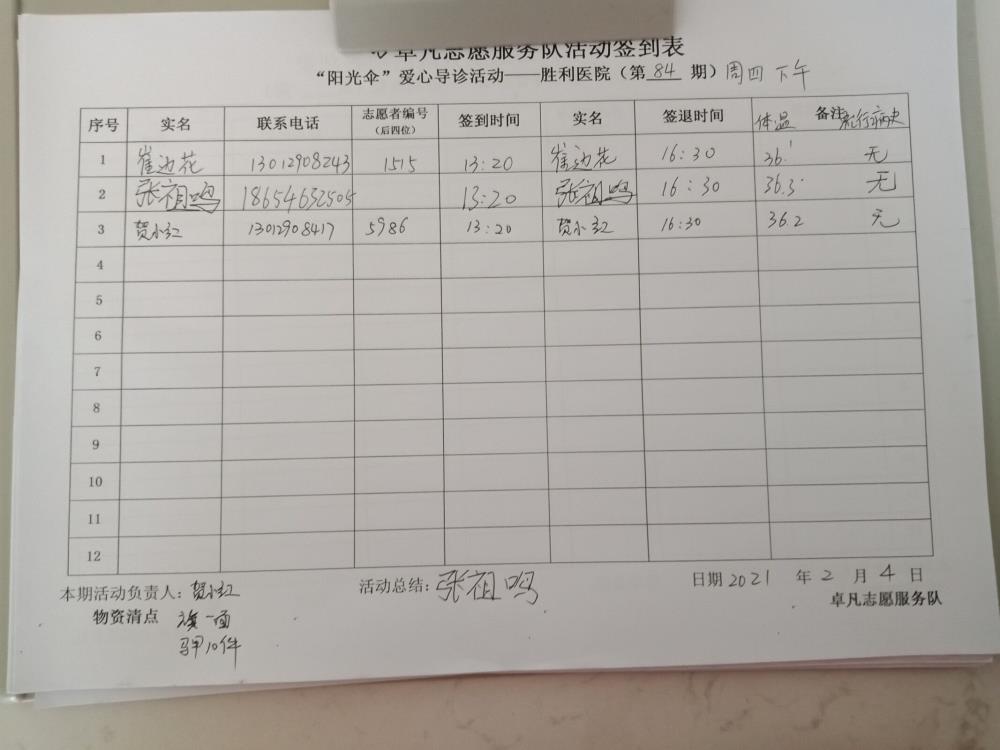 卓凡志愿服务队活动签到表
“阳光伞”爱心导诊活动——胜利医院（第 84 期）周四 下午
序号 实名 联系电话 志愿者编号（后四位） 签到时间 实名 签退时间 体温 备注 旅行病史
1 崔边花 13012908243 1515 13:20 崔边花 16:30 36.1 无
2 张祖鸣 18654632505 13:20 张祖鸣 16:30 36.5 无
3 贺小红 13012908417 5986 13:20 贺小红 16:30 36.2 无
4
5
6
7
8
9
10
11
12
本期活动负责人：贺小红 活动总结：张祖鸣 日期 2021 年 2 月 4 日
物资清点 旗一面 卓凡志愿服务队
马甲10件